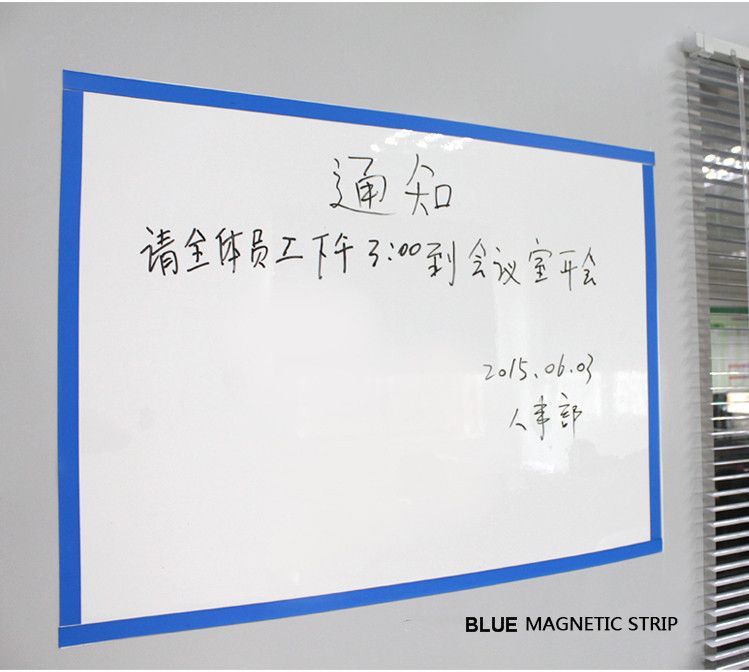 通知
请全体员工下午3:00到会议室开会
2015.06.03
人事部
BLUE MAGNETIC STRIP